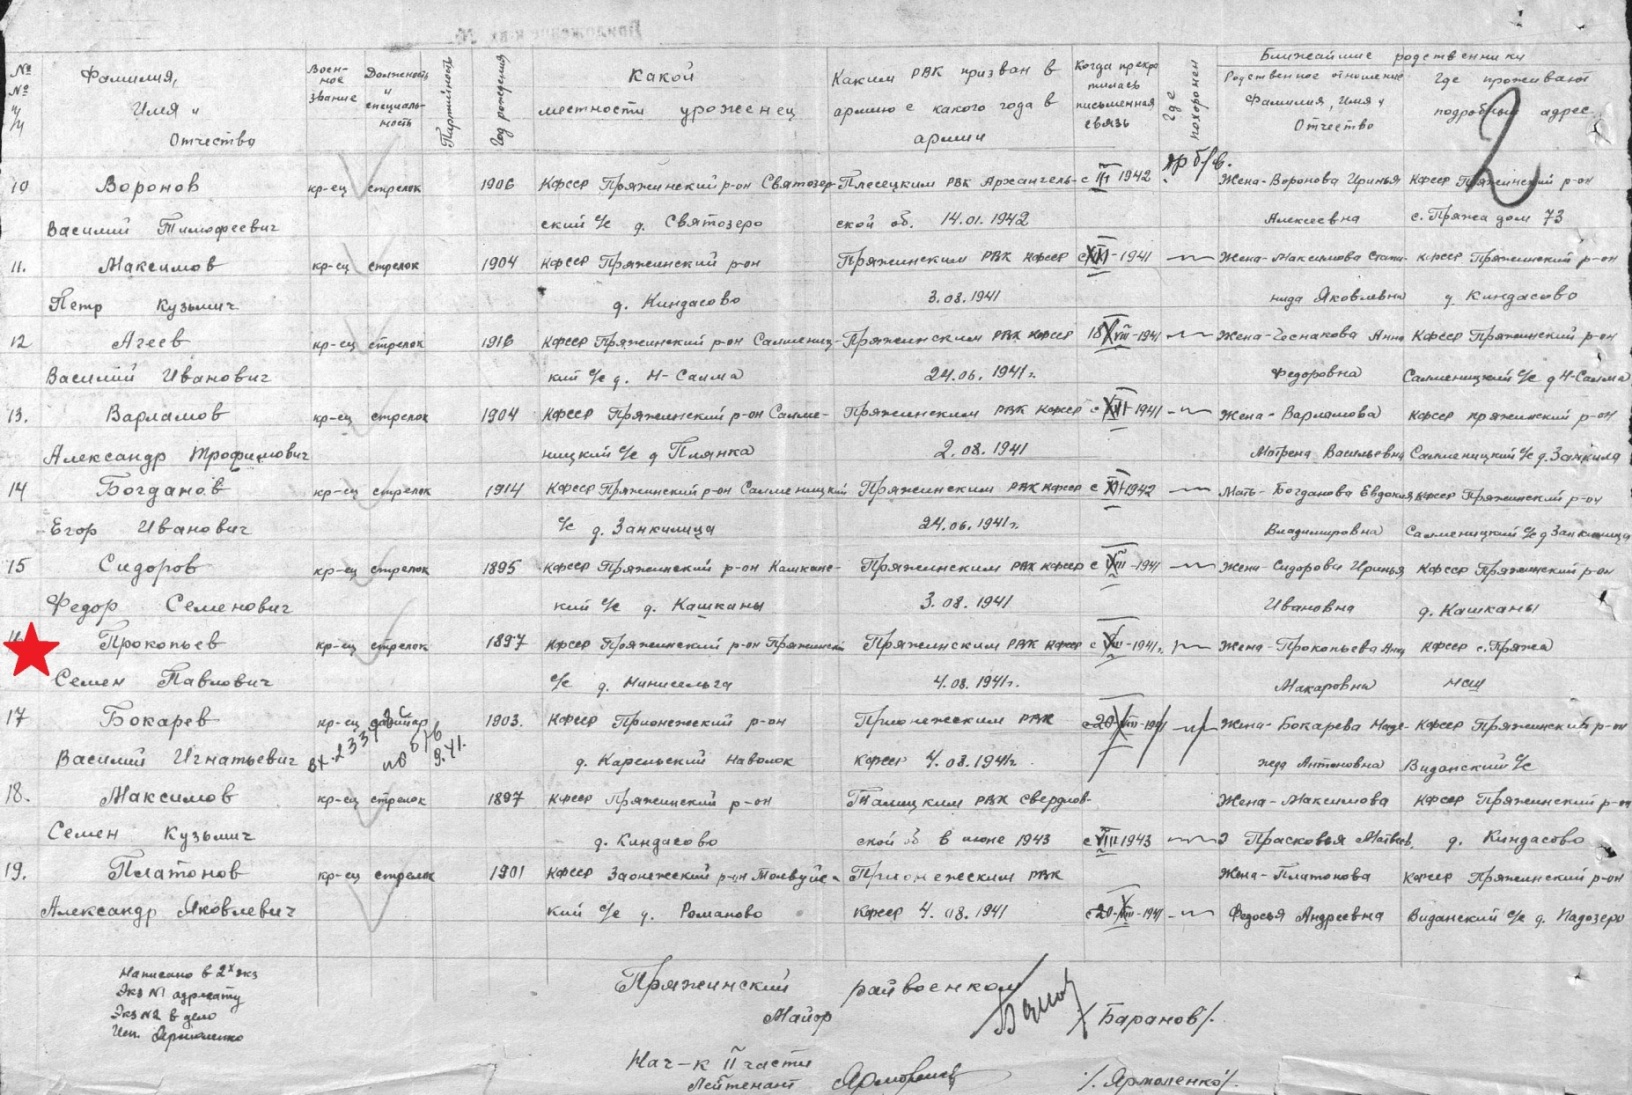 № № п/п
Фамилия, Имя и Отчество
Воен-ное звание
Должность и специаль-ность
Партийность
Год рождения
Какой местности уроженец
Каким РВК призван в армию с какого года в армии
Когда прекра тилась письменная связь
Где похоронен
Ближайшие родственники
Родственное отношение Фамилия, Имя и Отчество
Где проживают подробный адрес.
2
10 Воронов кр-ец стрелок 1906 КФССР Пряжинский р-он Святозер- Плесецким РВК Архангель- с 1942 пр б/в. Жена-Воронова Иринья КФССР Пряжинский р-он
Василий Тимофеевич ский с/с д. Святозеро ской об. 14.01.1942 Алексеевна с. Пряжа дом 73
11. Максимов кр-ец стрелок 1904 КФССР Пряжинский р-он Пряжинским РВК КФССР с -1941 Жена-Максимова Стани- КФССР Пряжинский р-он
Петр Кузьмич д. Киндасово 3.08.1941 нида Яковлевна д Киндасово
12 Агеев кр-ец стрелок 1916 КФССР Пряжинский р-он Салмениц- Пряжинским РВК КФССР VIII-1941 Жена-Чеснакова Анна КФССР Пряжинский р-он
Василий Иванович кий с/с д. Н-Салма 24.06.1941г. Федоровна Салменицкий с/с д Н-Салма
13. Варламов кр-ец стрелок 1904 КФССР Пряжинский р-он Салме- Пряжинским РВК КФССР с -1941 Жена-Варламова КФССР Пряжинский р-он
Александр Трофимович ницкий с/с д Плянка 2.08.1941 Матрена Васильевна Салменицкий с/с д.
14 Богданов кр-ец стрелок 1914 КФССР Пряжинский р-он Салменицкий Пряжинским РВК КФССР с 1942 Мать-Богданова Евдокия КФССР Пряжинский р-он
Егор Иванович с/с д. Занкилица 24.06.1941г. Владимировна Салменицкий с/с д Занкилица
15 Сидоров кр-ец стрелок 1895 КФССР Пряжинский р-он Кашкан- Пряжинским РВК КФССР с -1941 Жена-Сидорова Иринья КФССР Пряжинский р-он
Федор Семенович кий с/с д. Кашканы 3.08.1941 Ивановна д. Кашканы
16 Прокопьев кр-ец стрелок 1897 КФССР Пряжинский р-он Пряжинский Пряжинским РВК КФССР с -1941г. Жена-Прокопьева Анна КФССР с.Пряжа
Семен Павлович с/с д. Минисельга 4.08.1941г. Макаровна
17 Бокарев кр-ец 1903. КФССР Прионежский р-он Прионежским РВК с 20 -1941 Жена-Бокарева Наде- КФССР Пряжинский р-он
Василий Игнатьевич д. Карельский Наволок КФССР 4.08.1941г. жда Антоновна Виданский с/с
18. Максимов кр-ец стрелок 1897 КФССР Пряжинский р-он Талицким РВК Свердлов- Жена-Максимова КФССР Пряжинский р-он
Семен Кузьмич д. Киндасово ской в июне 1943 с VIII 1943 Прасковья Матвеев. д. Киндасово
19. Платонов кр-ец стрелок 1901 КФССР Заонежский р-он Толвуйс- Прионежским РВК Жена-Платонова КФССР Пряжинский р-он
Александр Яковлевич кий с/с д. Романово КФССР 4.08.1941 с 20 -1941 Федосья Андреевна Виданский с/с д. Падозеро
Написано в 2х экз
Экз №1 адресату
Экз №2 в дело
Исп. Ярмоленко
Пряжинский райвоенком
Майор /Баранов/.
Нач-к II части
Лейтенант /.Ярмоленко/.